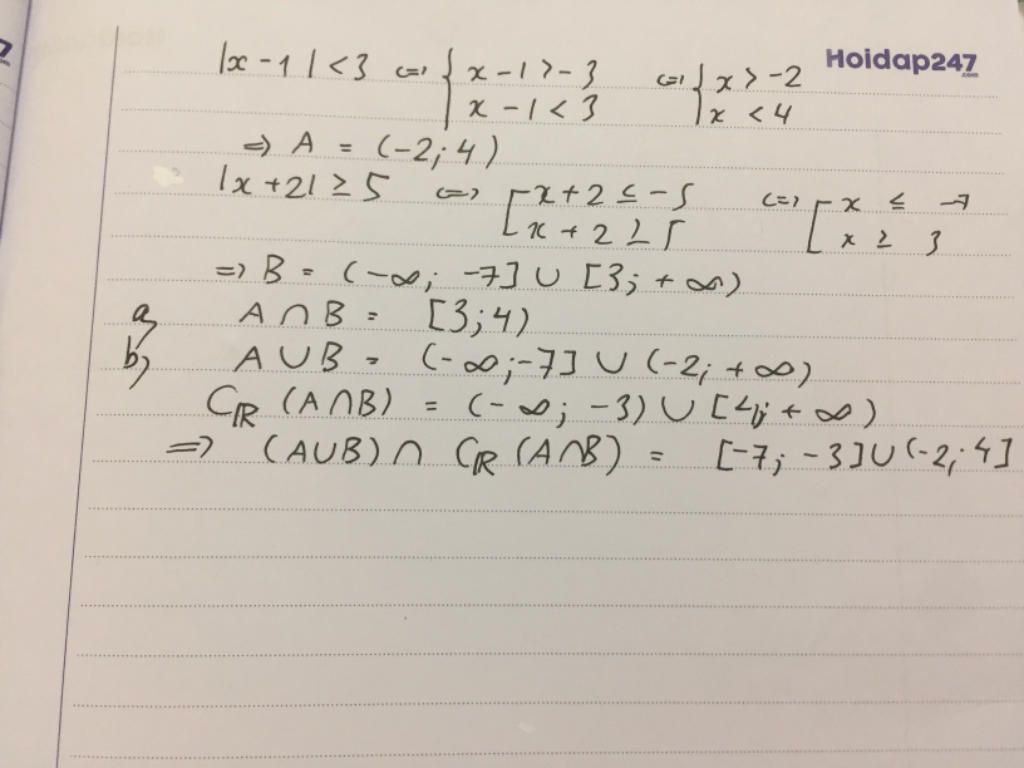 Hoidap247.com
|x - 1| < 3 <=> { x - 1 > - 3 <=> { x > -2
x - 1 < 3 x < 4
=> A = (-2; 4)
|x + 2| ≥ 5 <=> [ x + 2 ≤ - 5 <=> [ x ≤ -7
x + 2 ≥ 5 x ≥ 3
=> B = (-∞; -7] ∪ [3; +∞)
a, A ∩ B = [3; 4)
b, A ∪ B = (-∞; -7] ∪ (-2; +∞)
Cℝ (A∩B) = (-∞; -3) ∪ [4; +∞)
=> (A∪B) ∩ Cℝ (A∩B) = [-7; -3] ∪ (-2; 4]